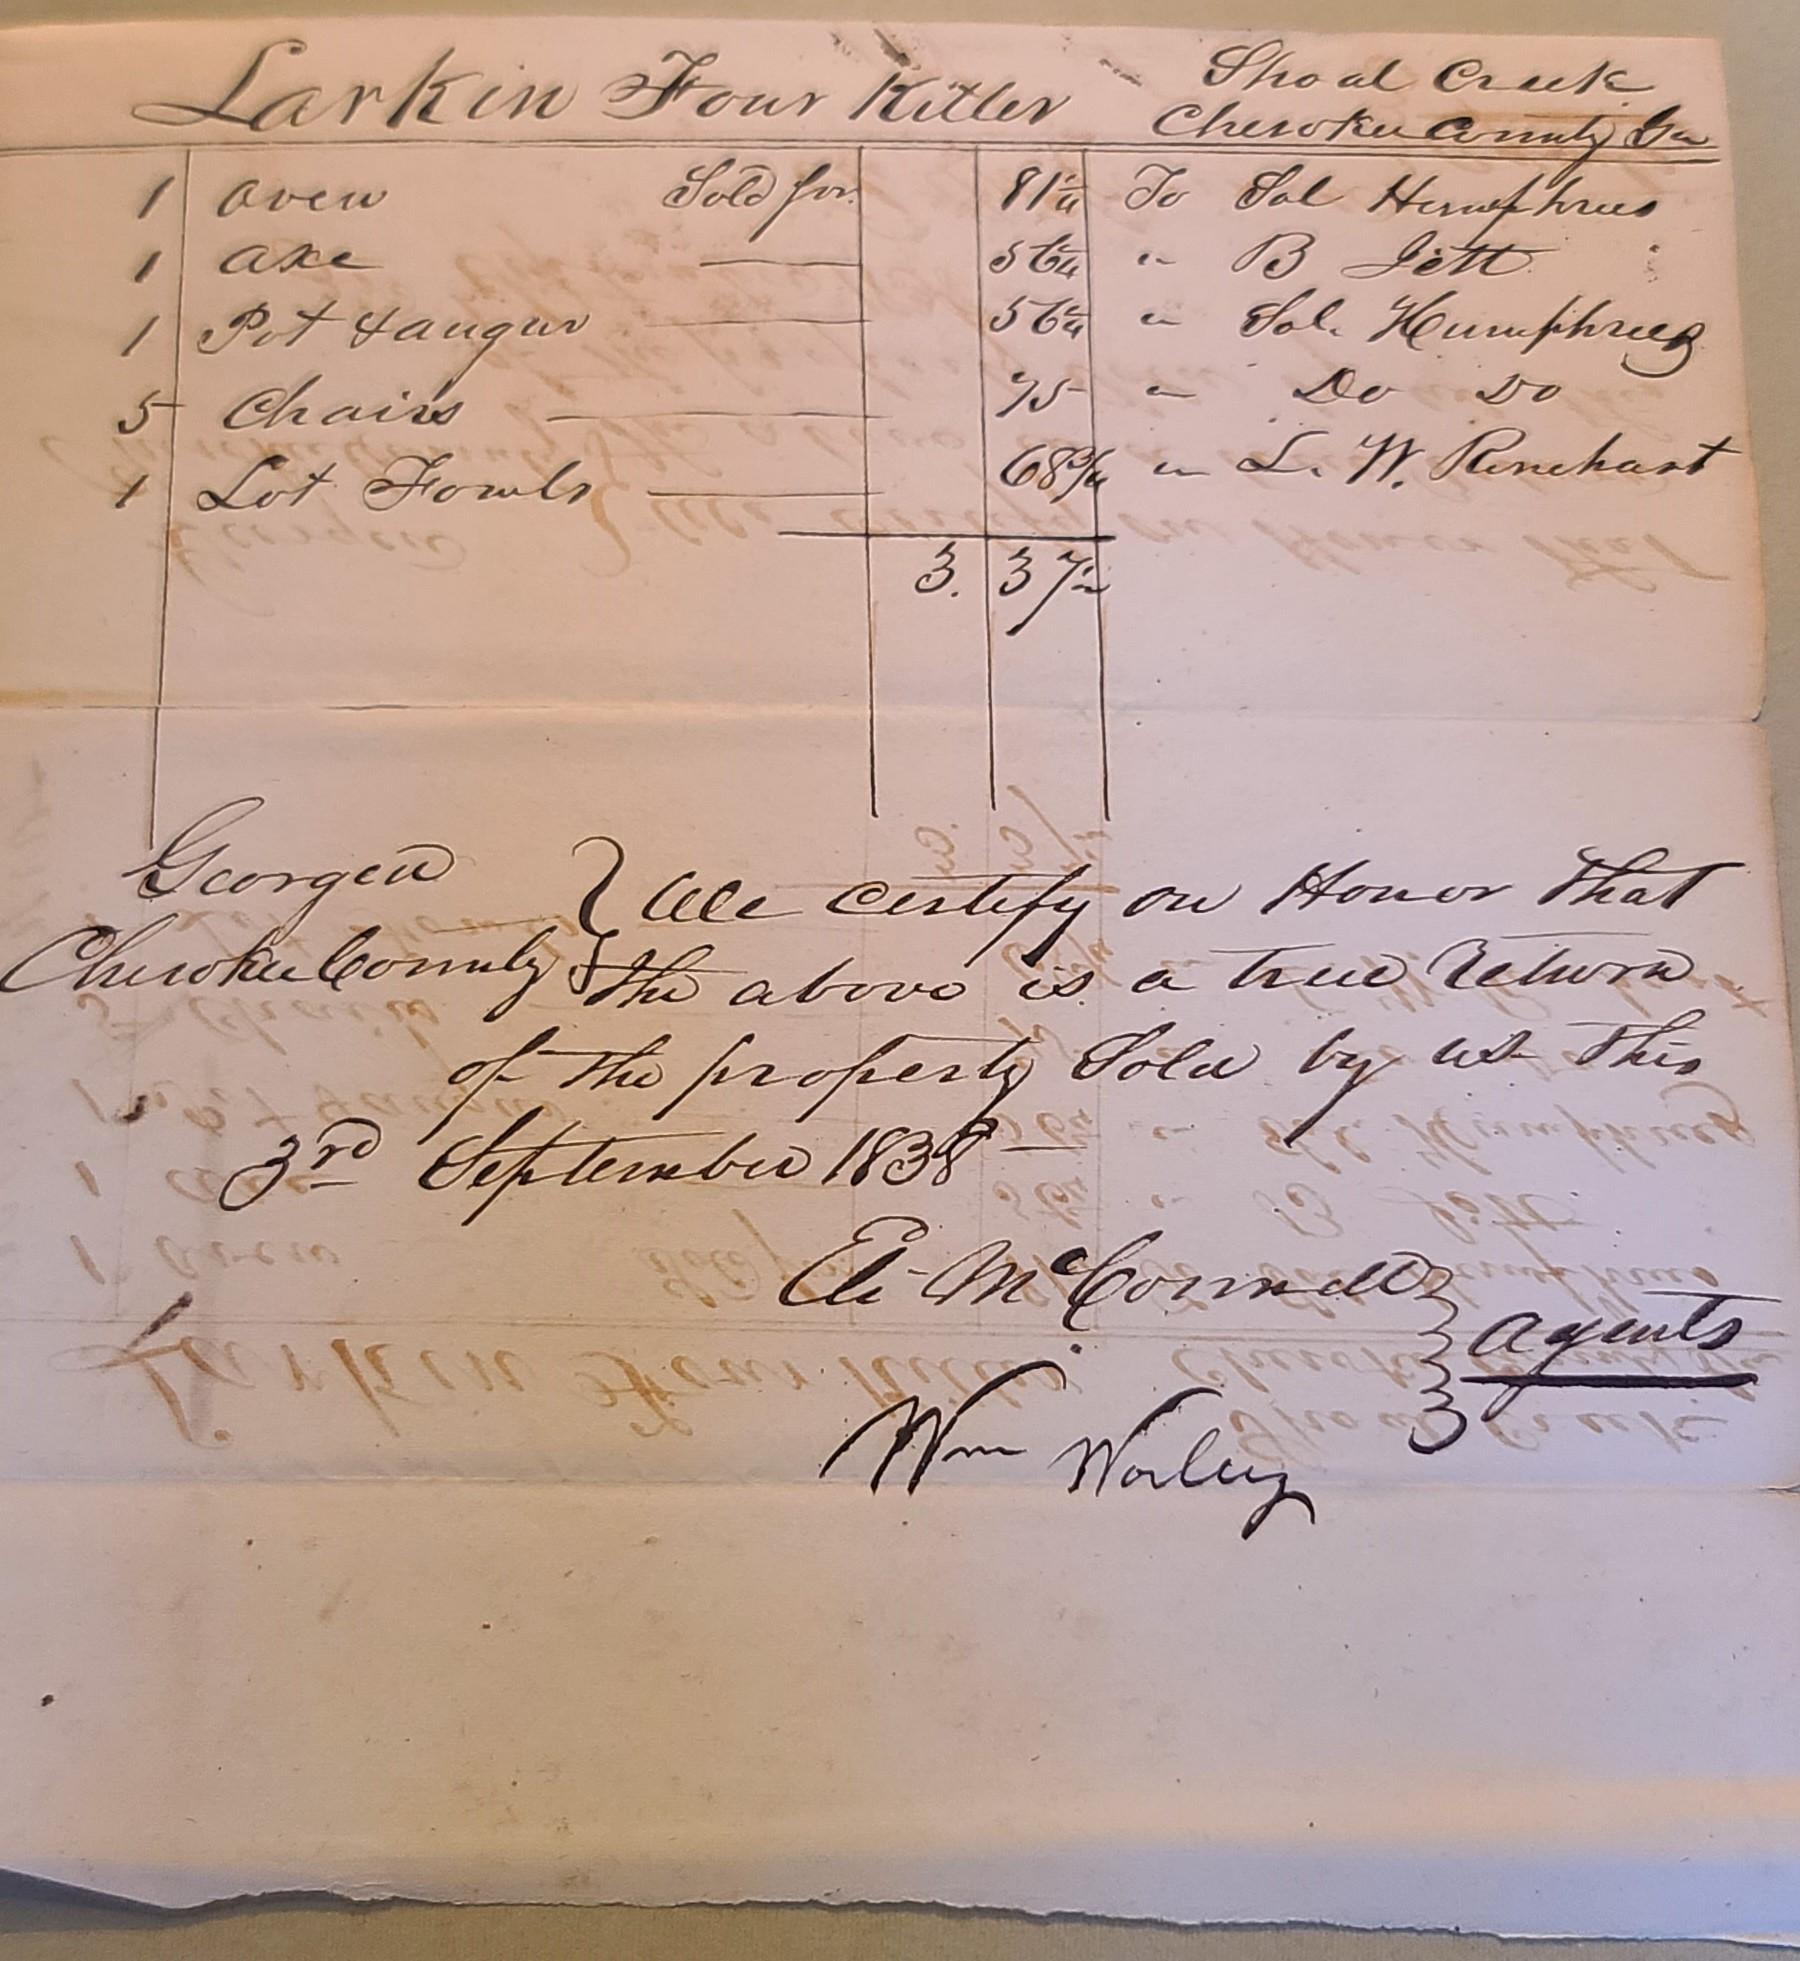 Larkin Four Killer Shoal Creek
Cherokee County Ga
1 Oven Sold for 81 1/4 To Sol Humphries
1 Axe — 56 1/4 " B Jett
1 Pot Hangur — 56 1/4 " Sol. Humphries
5 Chairs — 75 " Do Do
1 Lot Fowls — 68 3/4 " L. W. Rinehart
3. 37 1/2
Georgia } We certify on Honor that
Cherokee County } the above is a true Return
of the property Sold by us this
3rd September 1838 —
Eli McConnell } Agents
Wm Worley